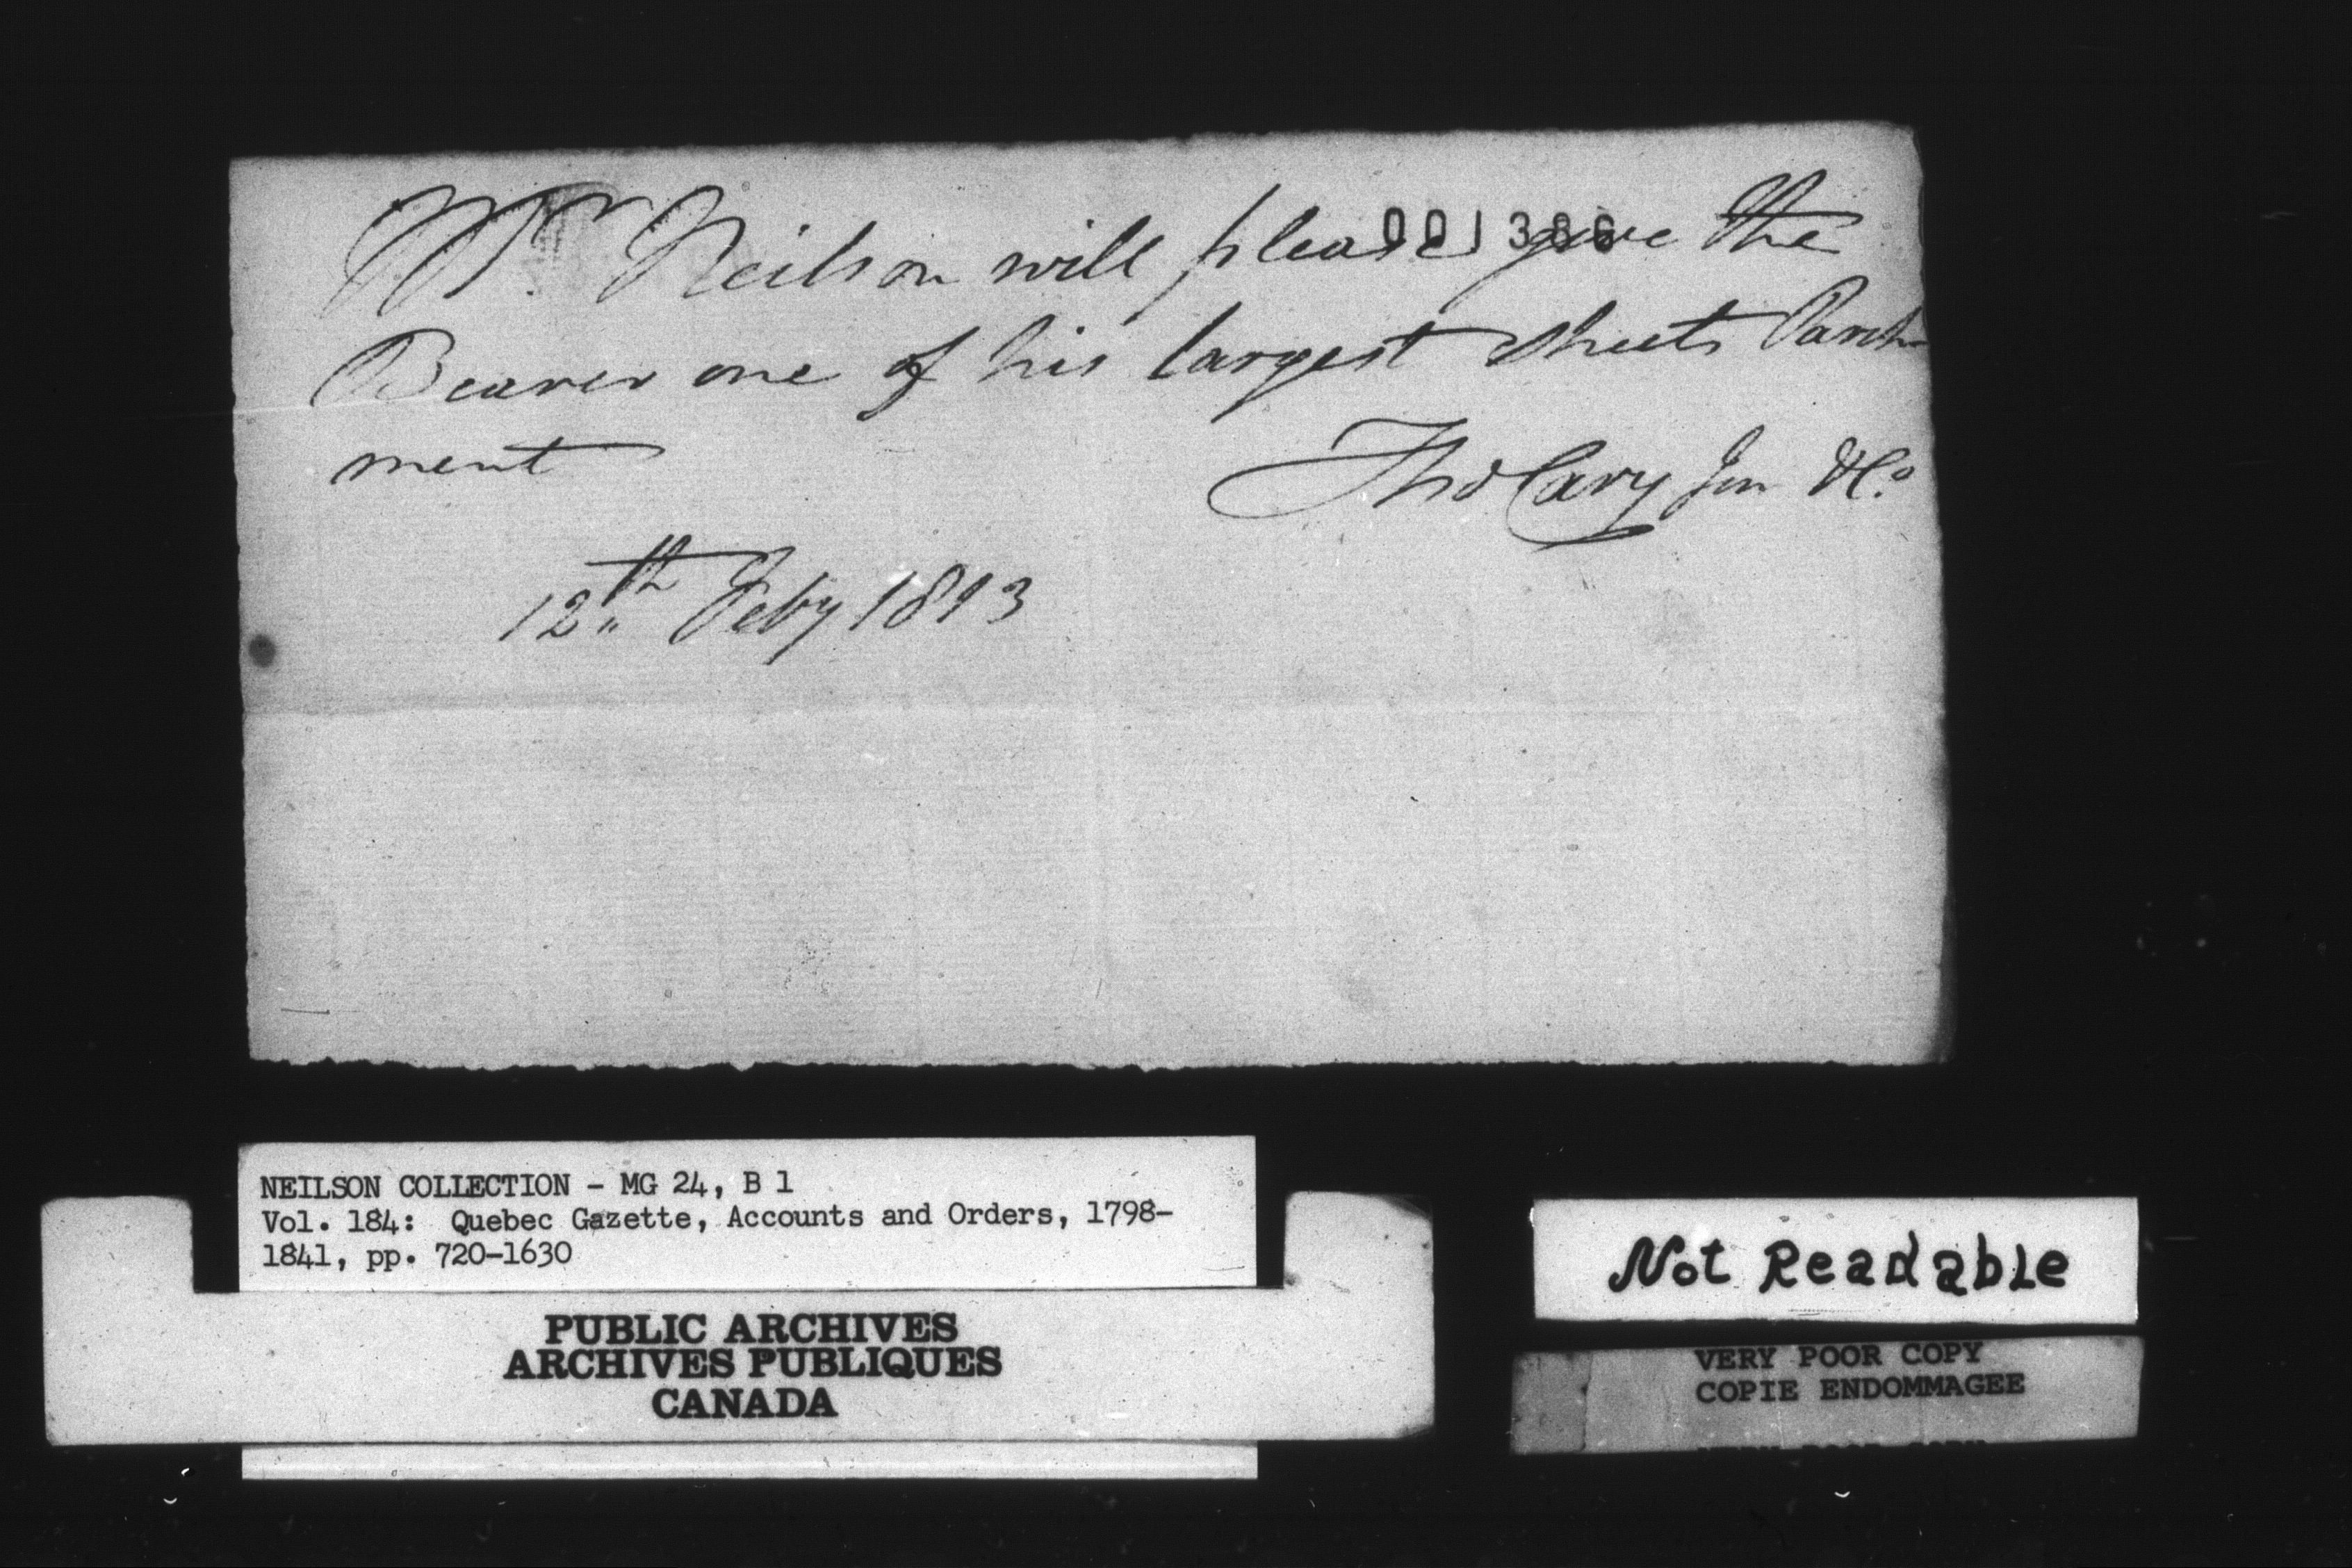 Mr. Neilson will please give the
001386
Bearer one of his largest sheets Parch-
ment
Thos Cary Jun & Co.
12th Feby 1813
NEILSON COLLECTION - MG 24, B 1
Vol. 184: Quebec Gazette, Accounts and Orders, 1798-
1841, pp. 720-1630
PUBLIC ARCHIVES
ARCHIVES PUBLIQUES
CANADA
Not Readable
VERY POOR COPY
COPIE ENDOMMAGEE